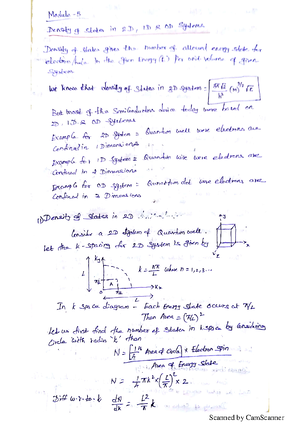 Module - 5
Density of States in 2D, 1D & 0D Systems
Density of States gives the number of allowed energy state for
electron/hole in the given Energy (E) per unit volume of given
System
We know that density of states in 3D system = 8π√2/h³ (m*)^3/2 √E
But most of the Semiconductor device today were based on
2D, 1D & 0D systems.
Example for 2D System = Quantum well were electron are
Confined in 1 Dimensions
Example for 1D System = Quantum wire were electron are
Confined in 2 Dimensions
Example for 0D System = Quantum dot were electron are
Confined in 3 Dimensions
1) Density of States in 2D
Consider a 2D system of Quantum well.
Let the k-spacing for 2D System is given by
L
L
k = nπ/L where n = 1, 2, 3...
In k space diagram - Each Energy State occurs at π/L
Then Area = (π/L)²
Let us first find the number of States in k space by Considering
Circle with radius "k" then
N = [1/4 Area of Circle] × Electron Spin
Area of Energy State
N = 1/4 πk² × (L/π)² × 2
Diff w.r.to k dN/dk = L²/π k
Scanned by CamScanner